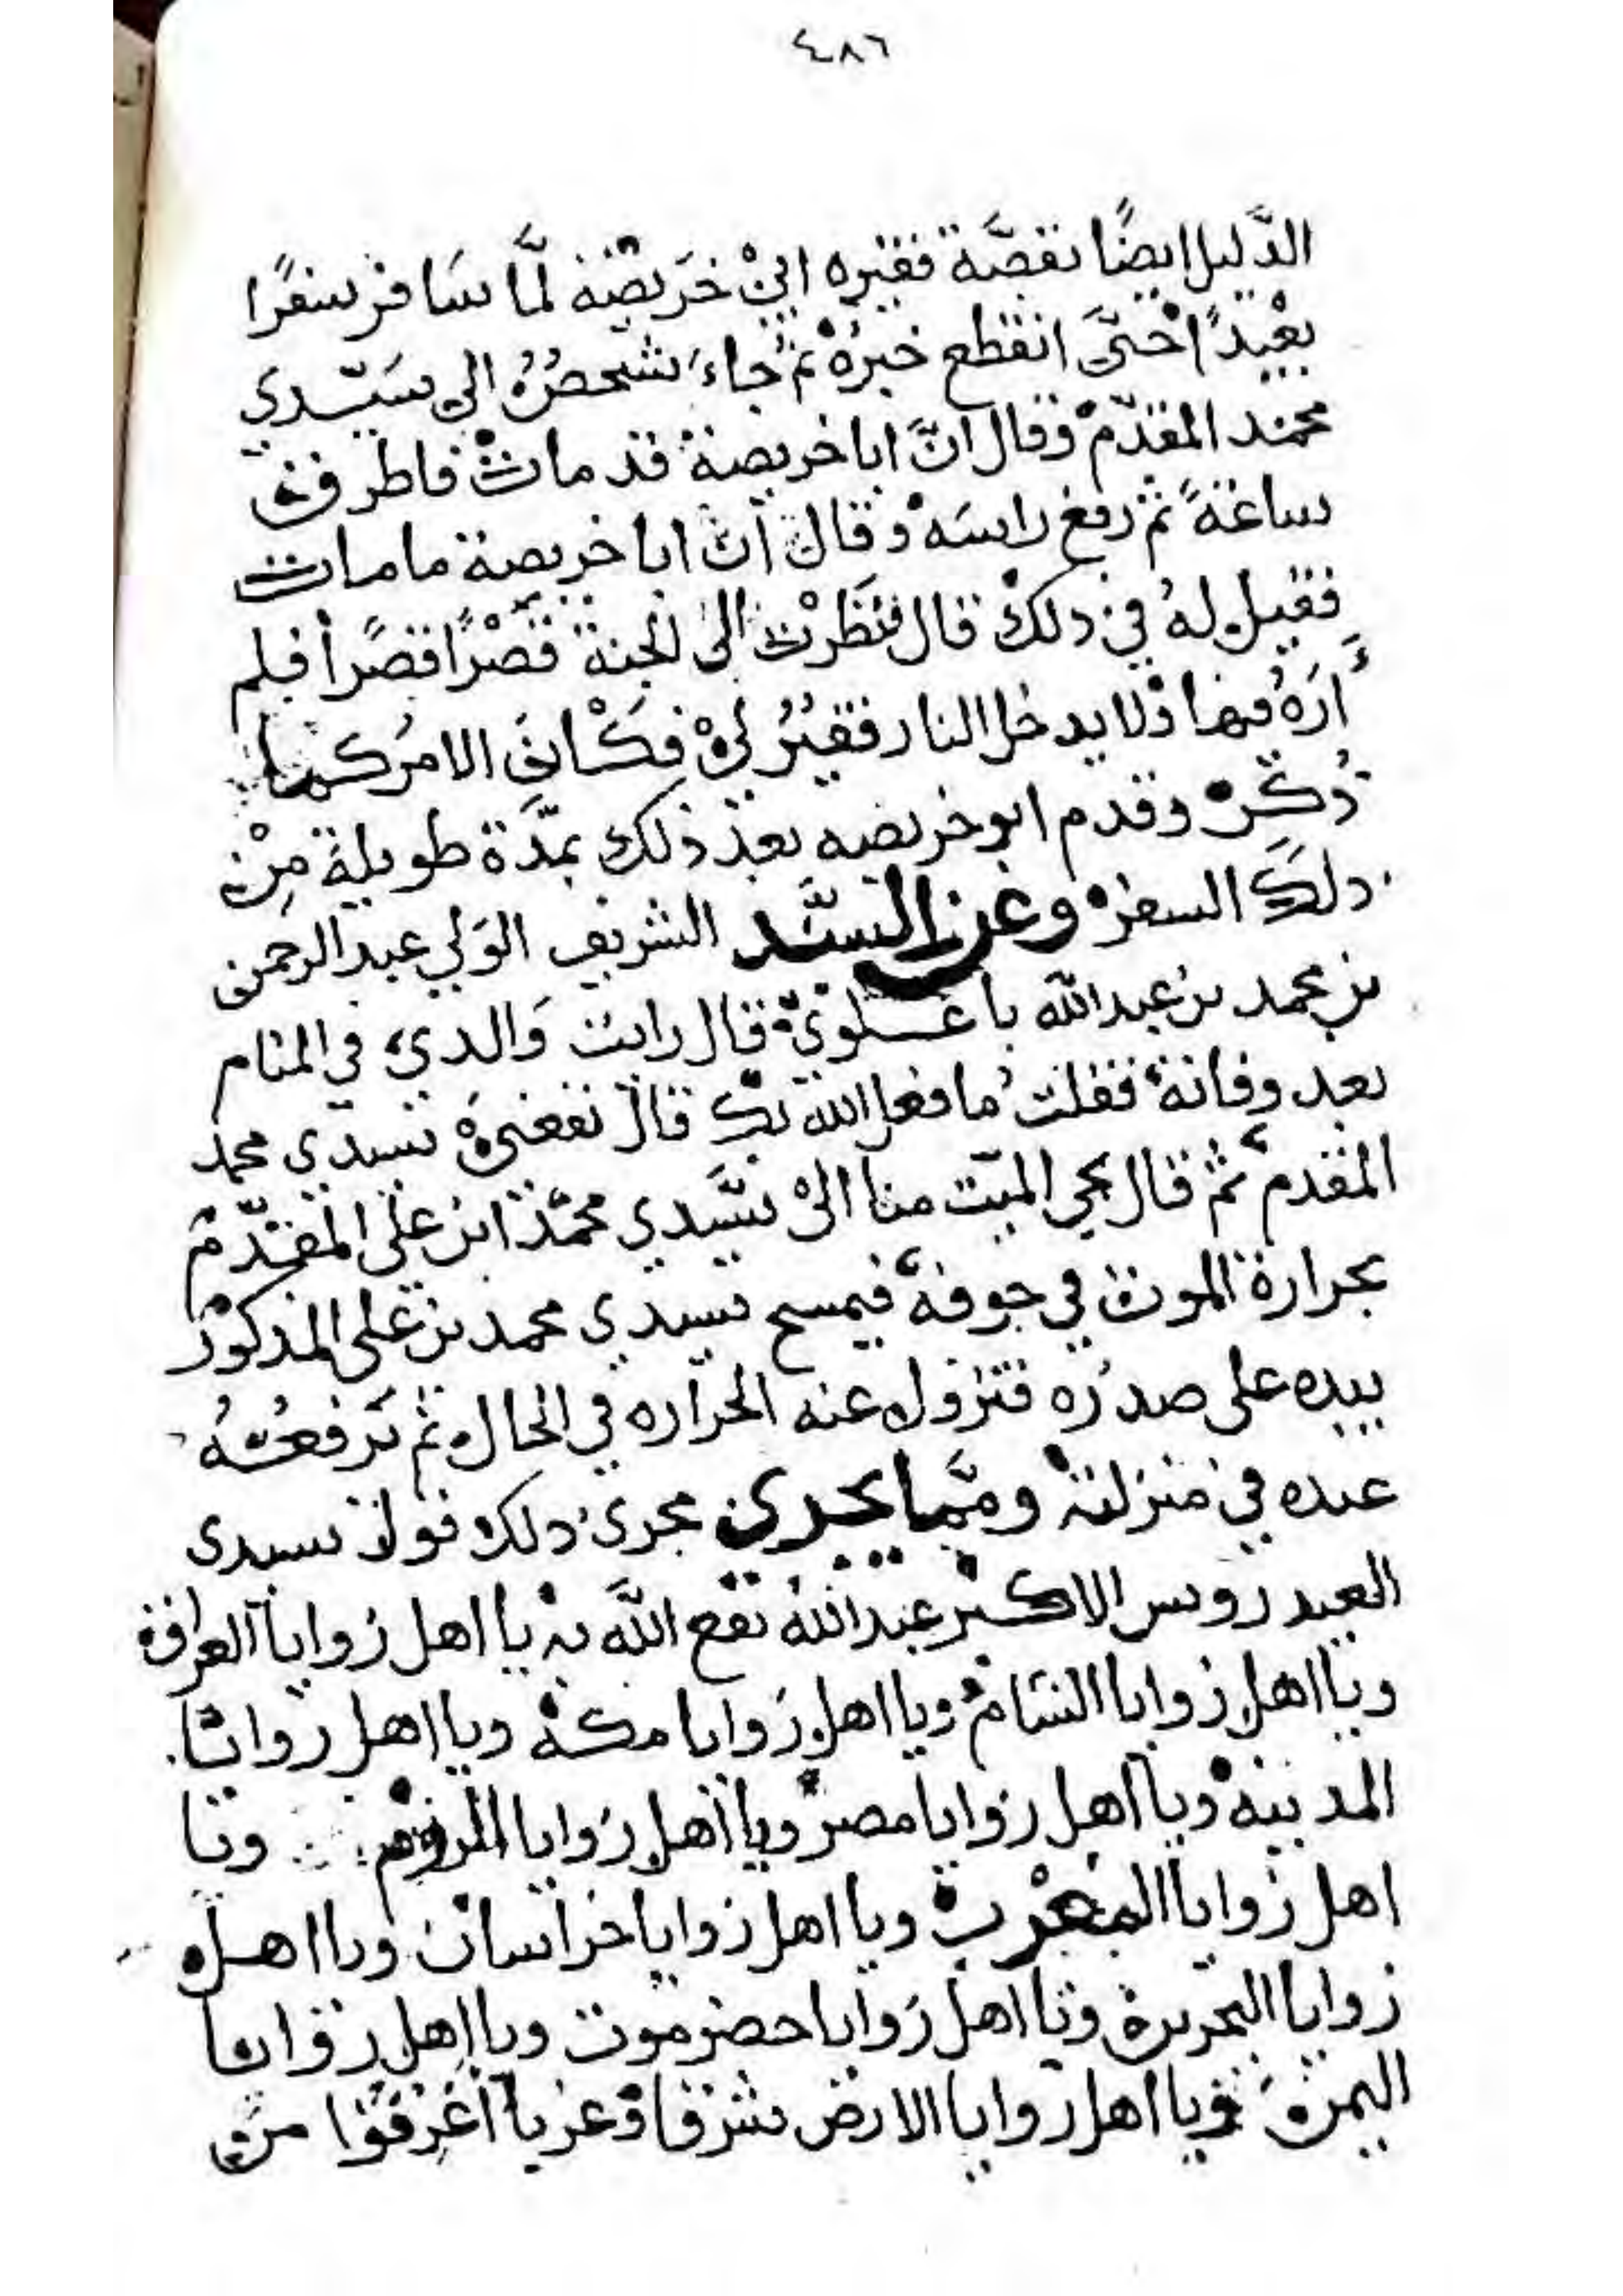 ٤٨٦
الدَّليل ايضًا بقصَّة فقيره ابيْ خَريصَه لمَّا سَافر سفرًا
بعْيدًا حْتىَّ انقطع خبرُهْ ثمُ جاءَ شخصٌ الي سَيّدي
محمد المقدّمْ وقال انَّ ابا خريصة قد ماتْ فاطرق
ساعةً ثم رفع راسَهْ وقال اَن ابا خريصة ما مات
فقيل لهُ في ذلكْ قال فنَظَرْت الىٰ الجنة قصْرًا قصْرًا فلم
أرَهُ فيها وْلا يدخل النار فقيرٌ ليْ فكَان الامر كما
ذُكرْ وقدم ابو خريصه بعد ذلك بمدَّة طويلة مِنْ
ذلكَ السفرْ وعن السَّيد الشريف الوَلي عبد الرحمن
بن محمد بن عبد الله با علويْ قال رايت وَالدي في المنام
بعد وفاتهْ فقلت ما فعل الله بك قال نفعني سيدي محمد
المقدم ثم قال يجي الميّت منا الىْ سَيّدي محمَّد ابن علي المقدّم
بحرارة الموت في جوفهْ فيمسح سيدي محمد بن علي المذكور
بيده على صدرُه فتزول عنه الحرَاره في الحال ثم يَرفعُهُ
عنده في منزلتهْ وممَّا يجري مجرى ذلك قول سيدى
العيدروس الاكبر عبد الله نفع الله به يا اهل زوايا العراق
ويا اهل زوايا الشامْ ويا اهل زَوايا مكهْ ويا اهل زوايا
المدينهْ ويا اهل زوايا مصرْ ويا اهل زَوايا الرومْ ويا
اهل زوايا المغرب ويا اهل زوايا خراسان ويا اهل
زوايا البحرين ويا اهل زَوايا حضرموت ويا اهل زوايا
اليمن ويا اهل زوايا الارض شرقا وْغربا اغرفوا من